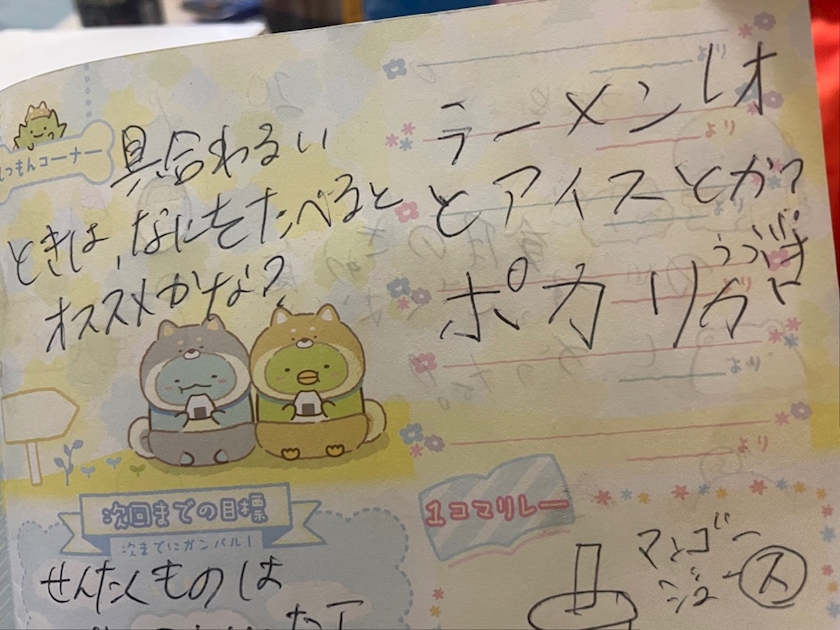 しつもんコーナー
具合わるい
ときは、なにをたべると
オススメかな?
ラーメン
とアイスとか?
ポカリ
より
より
より
より
より
より
次回までの目標
次までにガンバル!
せんたくものは
1コマリレー
マンゴー
ジュース